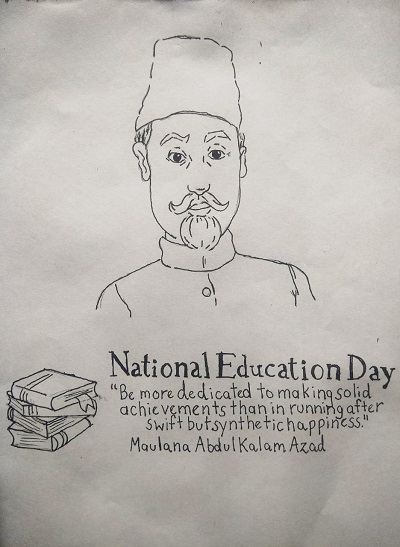 National Education Day
"Be more dedicated to making solid
achievements than in running after
swift but synthetic happiness."
Maulana Abdul Kalam Azad